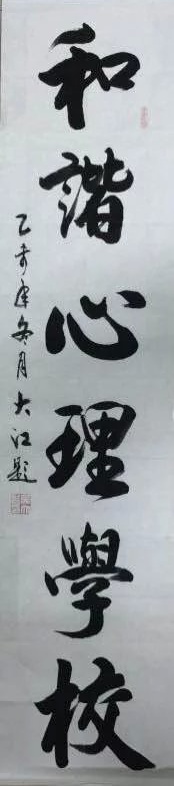 和諧心理學校
乙未年冬月大江題